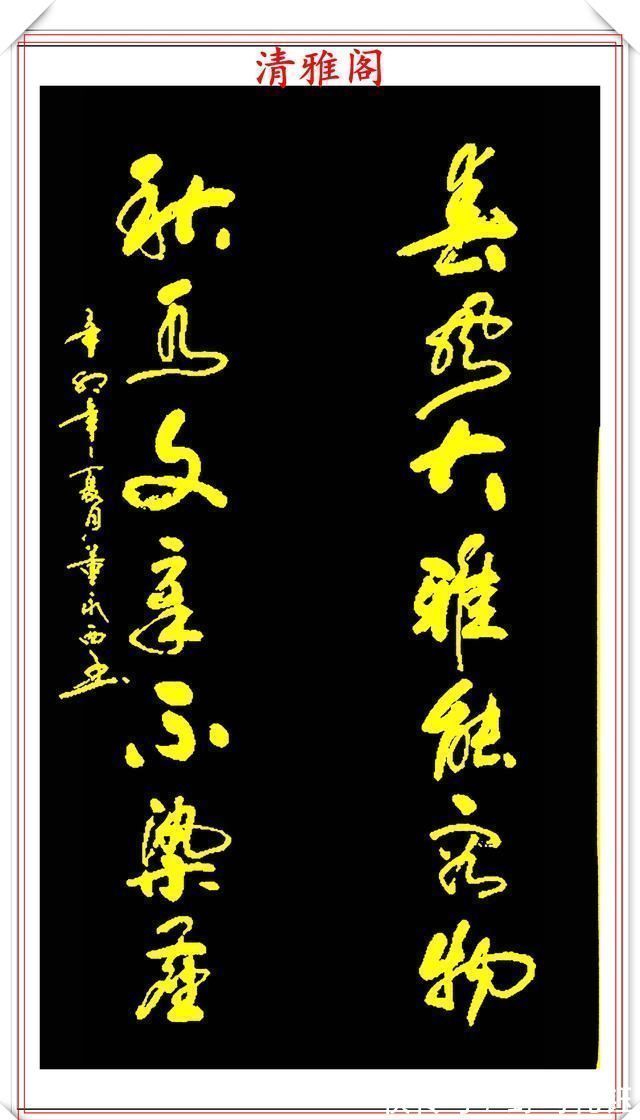 清雅阁
春风大雅能容物
秋水文章不染尘
辛卯年夏月董永西书